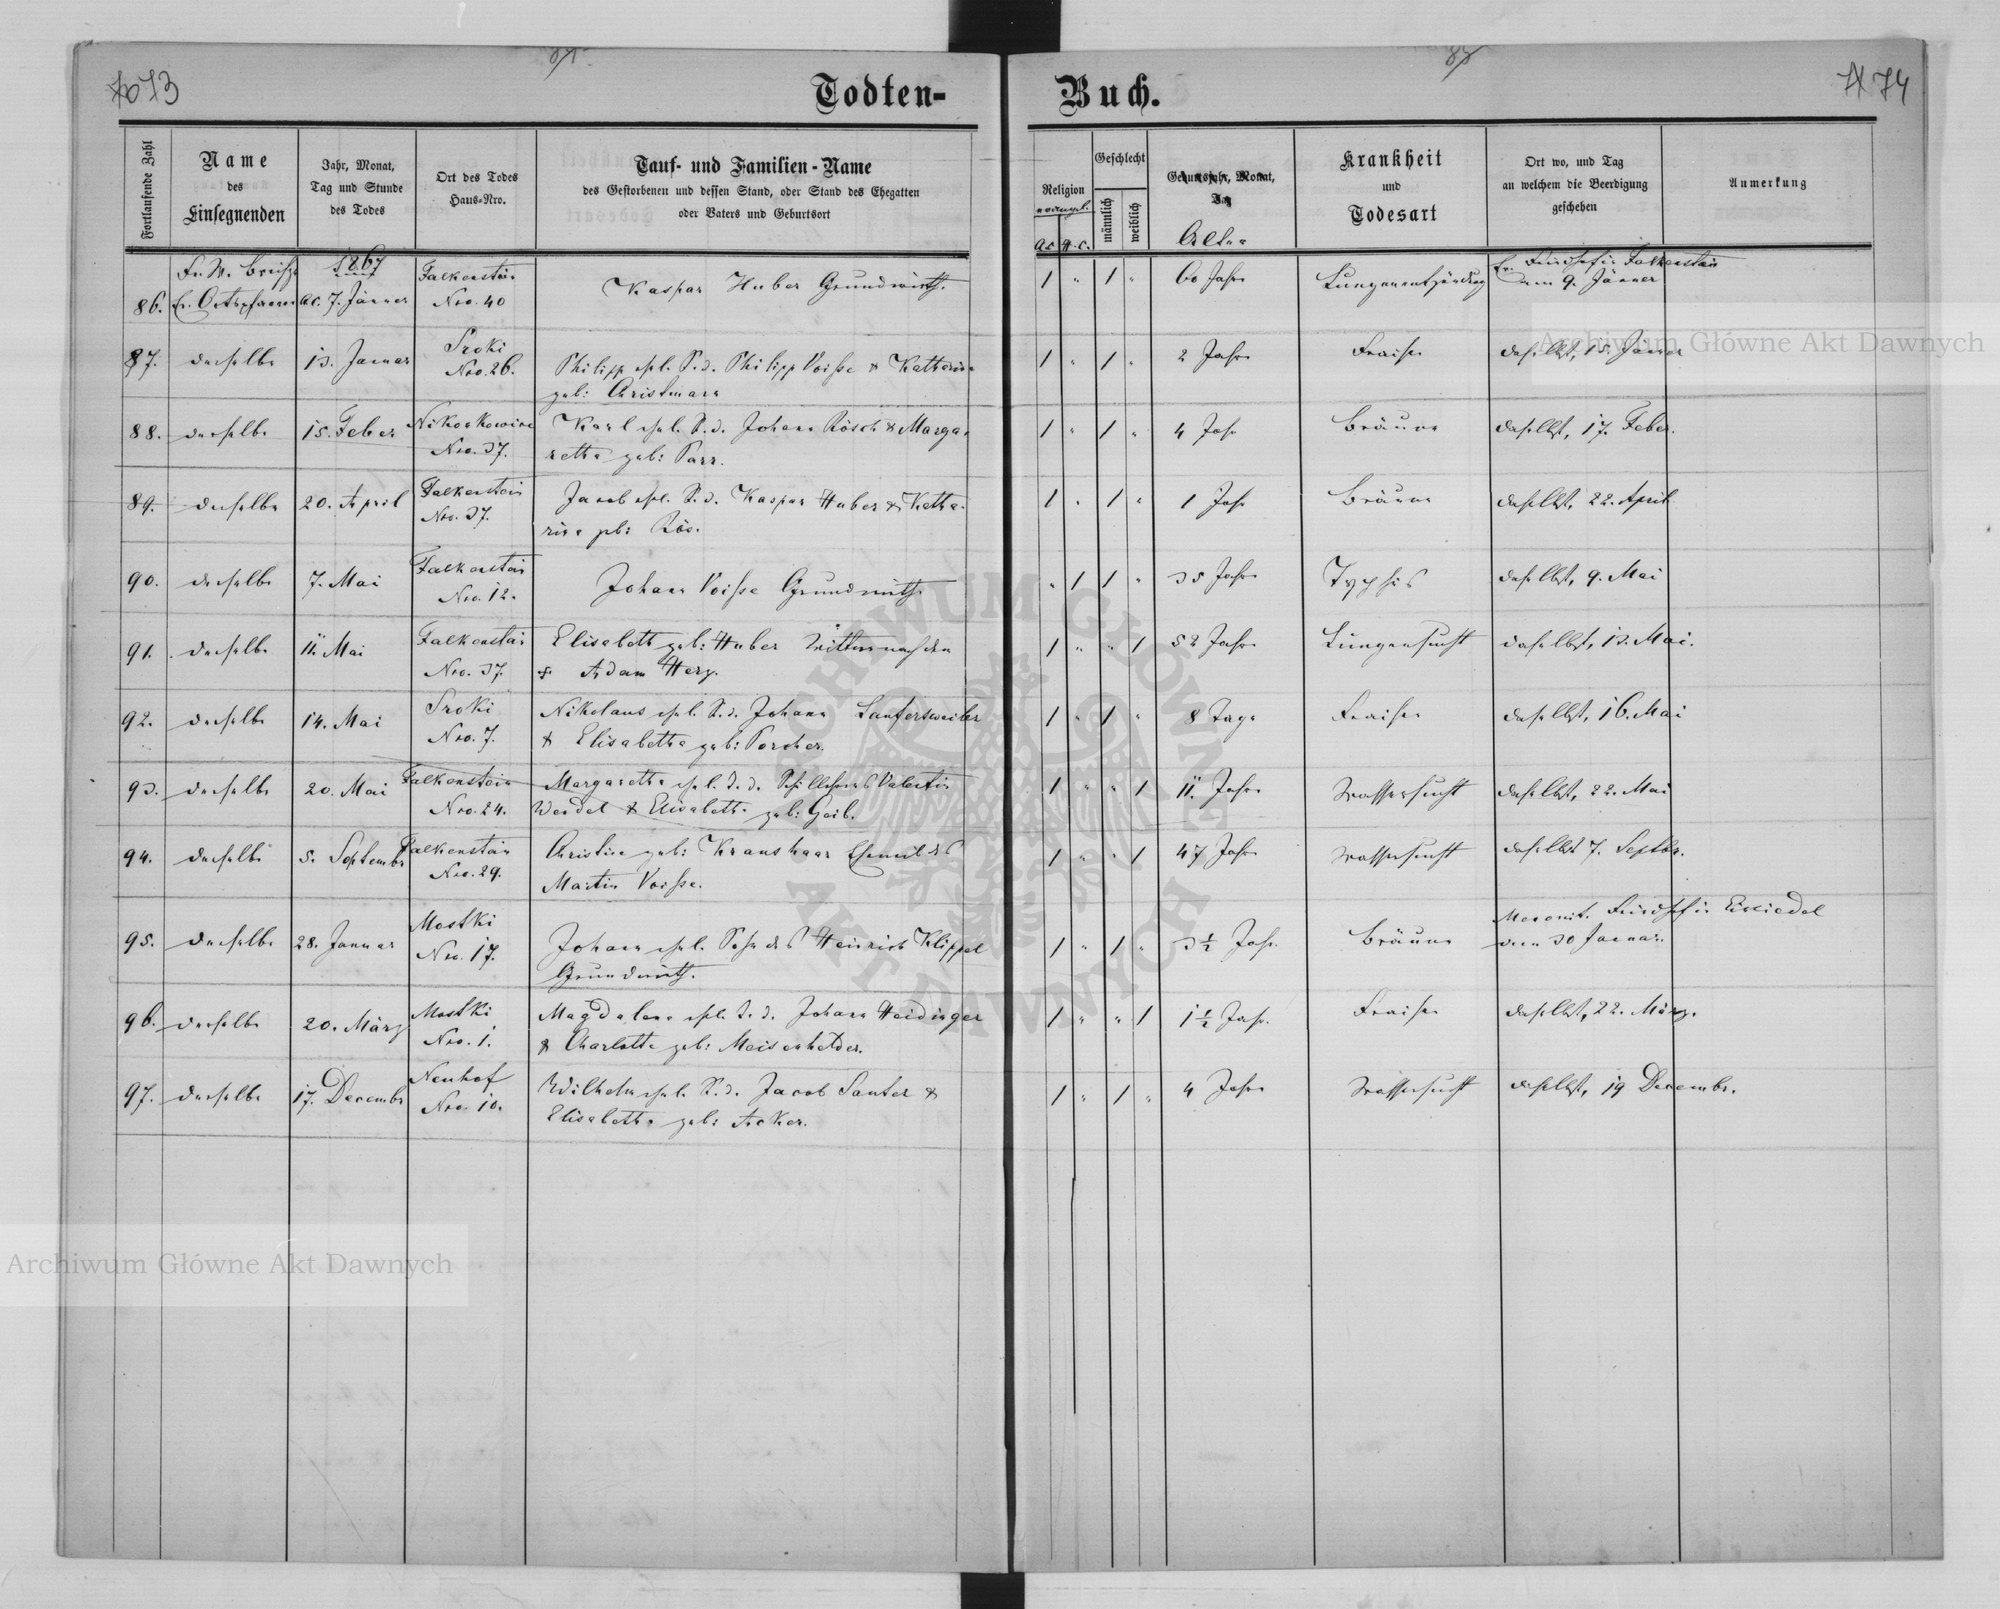 73
74
Todten-
Buch.
Fortlaufende Zahl
Name
des
Einsegnenden
Jahr, Monat,
Tag und Stunde
des Todes
Ort des Todes
Haus-Nro.
Tauf- und Familien-Name
des Gestorbenen und dessen Stand, oder Stand des Ehegatten
oder Vaters und Geburtsort
Religion
evangel.
A.C. H.C.
Geschlecht
männlich
weiblich
Geburtsjahr, Monat,
Tag
Alter
Krankheit
und
Todesart
Ort wo, und Tag
an welchem die Beerdigung
geschehen
Anmerkung
1867
86. Ev. Ortspfarrer 7. Jänner Falkenstein Nro. 40 Kaspar Huber Grundwirth. 1 " 1 " 60 Jahre Lungenentzündung Ev. Friedhof in Falkenstein am 9. Jänner
87. derselbe 13. Januar Sroki Nro. 26. Philipp ehel. S. d. Philipp Voisse & Katharina
geb: Christmann 1 " 1 " 2 Jahre Fraise daselbst, 15. Januar
88. derselbe 15. Feber Nro. 37. Karl ehel. S. d. Johann Rösch & Marga-
retha geb: Parr. 1 " 1 " 4 Jahr Bräune daselbst, 17. Feber.
89. derselbe 20. April Falkenstein Nro. 37. Jacob ehel. S. d. Kaspar Huber & Katha-
rina geb: 1 " 1 " 1 Jahr Bräune daselbst, 22. April
90. derselbe 7. Mai Falkenstein Nro. 12. Johann Voisse Grundwirth " 1 1 " 35 Jahre Typhus daselbst, 9. Mai
91. derselbe 11. Mai Falkenstein Nro. 37. Elisabeth geb: Huber Wittwe nach dem
+ Adam Herz. 1 " " 1 52 Jahre Lungensucht daselbst, 13. Mai.
92. derselbe 14. Mai Sroki Nro. 7. Nikolaus ehel. S. d. Johann Lautersweiler
& Elisabetha geb: Porcher. 1 " 1 " 8 Tage Fraise daselbst, 16. Mai
93. derselbe 20. Mai Falkenstein Nro. 24. Margaretha ehel. T. d. Schullehrers Valentin
Wendel & Elisabetha geb: Geib. 1 " " 1 11. Jahre Wassersucht daselbst, 22. Mai
94. derselbe 5. September Falkenstein Nro. 29. Christina geb: Kraushaar Eheweib des
Martin Voisse. 1 " " 1 47 Jahre Wassersucht daselbst 7. Septbr.
95. derselbe 28. Januar Mostki Nro. 17. Johann ehel. Sohn des Heinrich Klippel
Grundwirth. 1 " 1 " 3 1/2 Jahr. Bräune Menonit. Friedhof in Einsiedel den 30 Januar.
96. derselbe 20. März Mostki Nro. 1. Magdalena ehel. T. d. Johann Haidinger
& Charlotte geb: Meisenhelder. 1 " " 1 1 1/2 Jahr. Fraise daselbst, 22. März.
97. derselbe 17. Decembr Neuhof Nro. 10. Wilhelm ehel. S. d. Jacob Sauter &
Elisabetha geb: Acker. 1 " 1 " 4 Jahre Wassersucht daselbst, 19 Decembr.
Archiwum Główne Akt Dawnych
Archiwum Główne Akt Dawnych
ARCHIWUM GŁÓWNE
AKT DAWNYCH